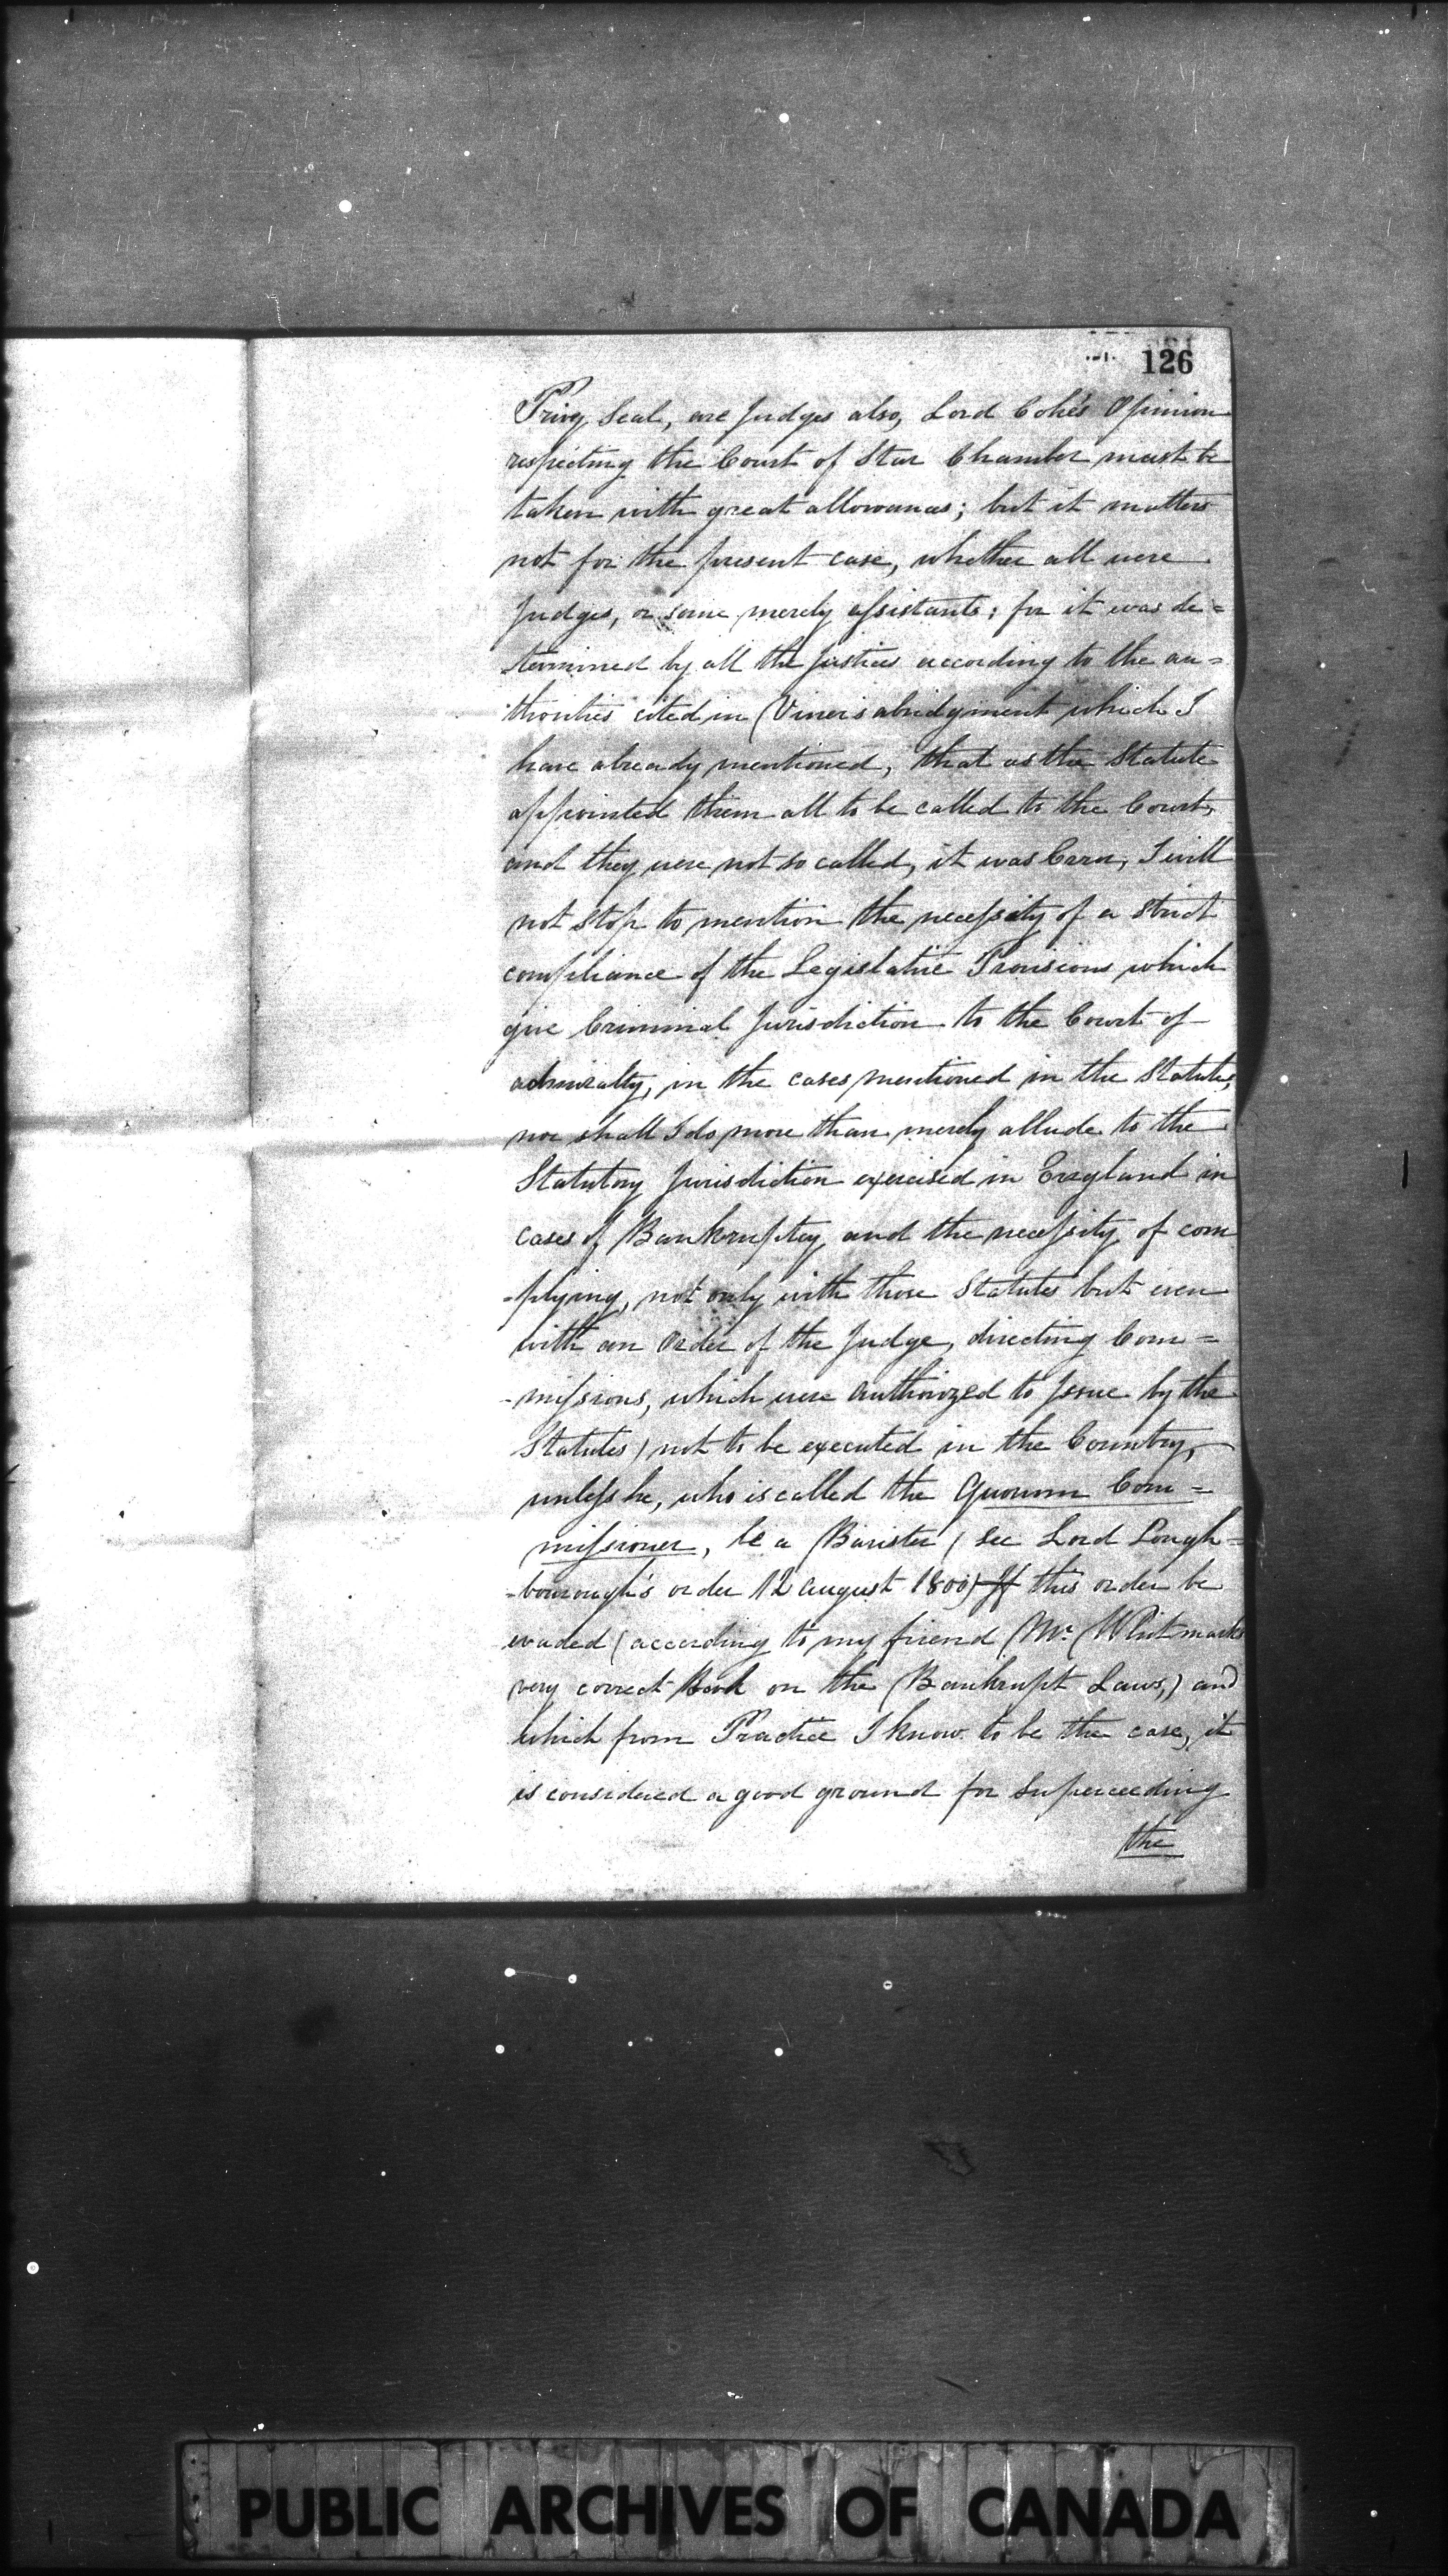 126
Privy Seal, are Judges also, Lord Coke's Opinion
respecting the Court of Star Chamber must be
taken with great allowances; but it matters
not for the present case, whether all were
Judges, or some merely assistants; for it was de=
termined by all the Justices according to the au=
thorities cited in Viner's abridgment which I
have already mentioned, that as the Statute
appointed them all to be called to the Court,
and they were not so called, it was Error, I will
not stop to mention the necessity of a strict
compliance of the Legislative Provisions which
give Criminal Jurisdiction to the Court of
admiralty, in the cases mentioned in the Statutes,
nor shall I do more than merely allude to the
Statutory Jurisdiction exercised in England in
cases of Bankruptcy, and the necessity of com
-plying, not only with those Statutes but even
with an Order of the Judge, directing Com=
-missions, which were authorized to Issue by the
Statutes) not to be executed in the Country,
unless he, who is called the Quorum Com=
missioner, be a Barister (see Lord Lough=
-borough's order 12 august 1800) If this order be
evaded (according to my friend Mr. Whitmarsh
very correct Book on the Bankrupt Laws,) and
which from Practice I know to be the case, it
is considered a good ground for Superceeding
the
PUBLIC ARCHIVES OF CANADA